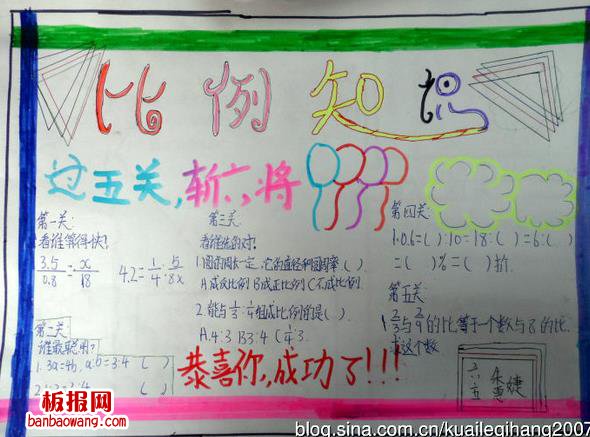 比例知识
过五关,斩六将
第一关:
看谁算得快!
3.5/0.8=x/18 4.2=1/4:5/8x
第二关:
谁最聪明?
1. 3a=4b, a:b=3:4 ( )
3:4 ( )
第三关:
看谁选的对!
1.圆的周长一定,它的直径和圆周率( )
A.成反比例 B成正比例 C不成比例
2.能与 组成比例的是( )
A.4:3 B3:4
第四关:
1.0.6=( ):10=18:( )=6:( )
=( )%=( )折.
第五关:
1.2/3与2/9的比等于一个数与8的比.
求这个数
恭喜你,成功了!!!
六
五
板报网
banbaowang.com
blog.sina.com.cn/kuaileqihang2007